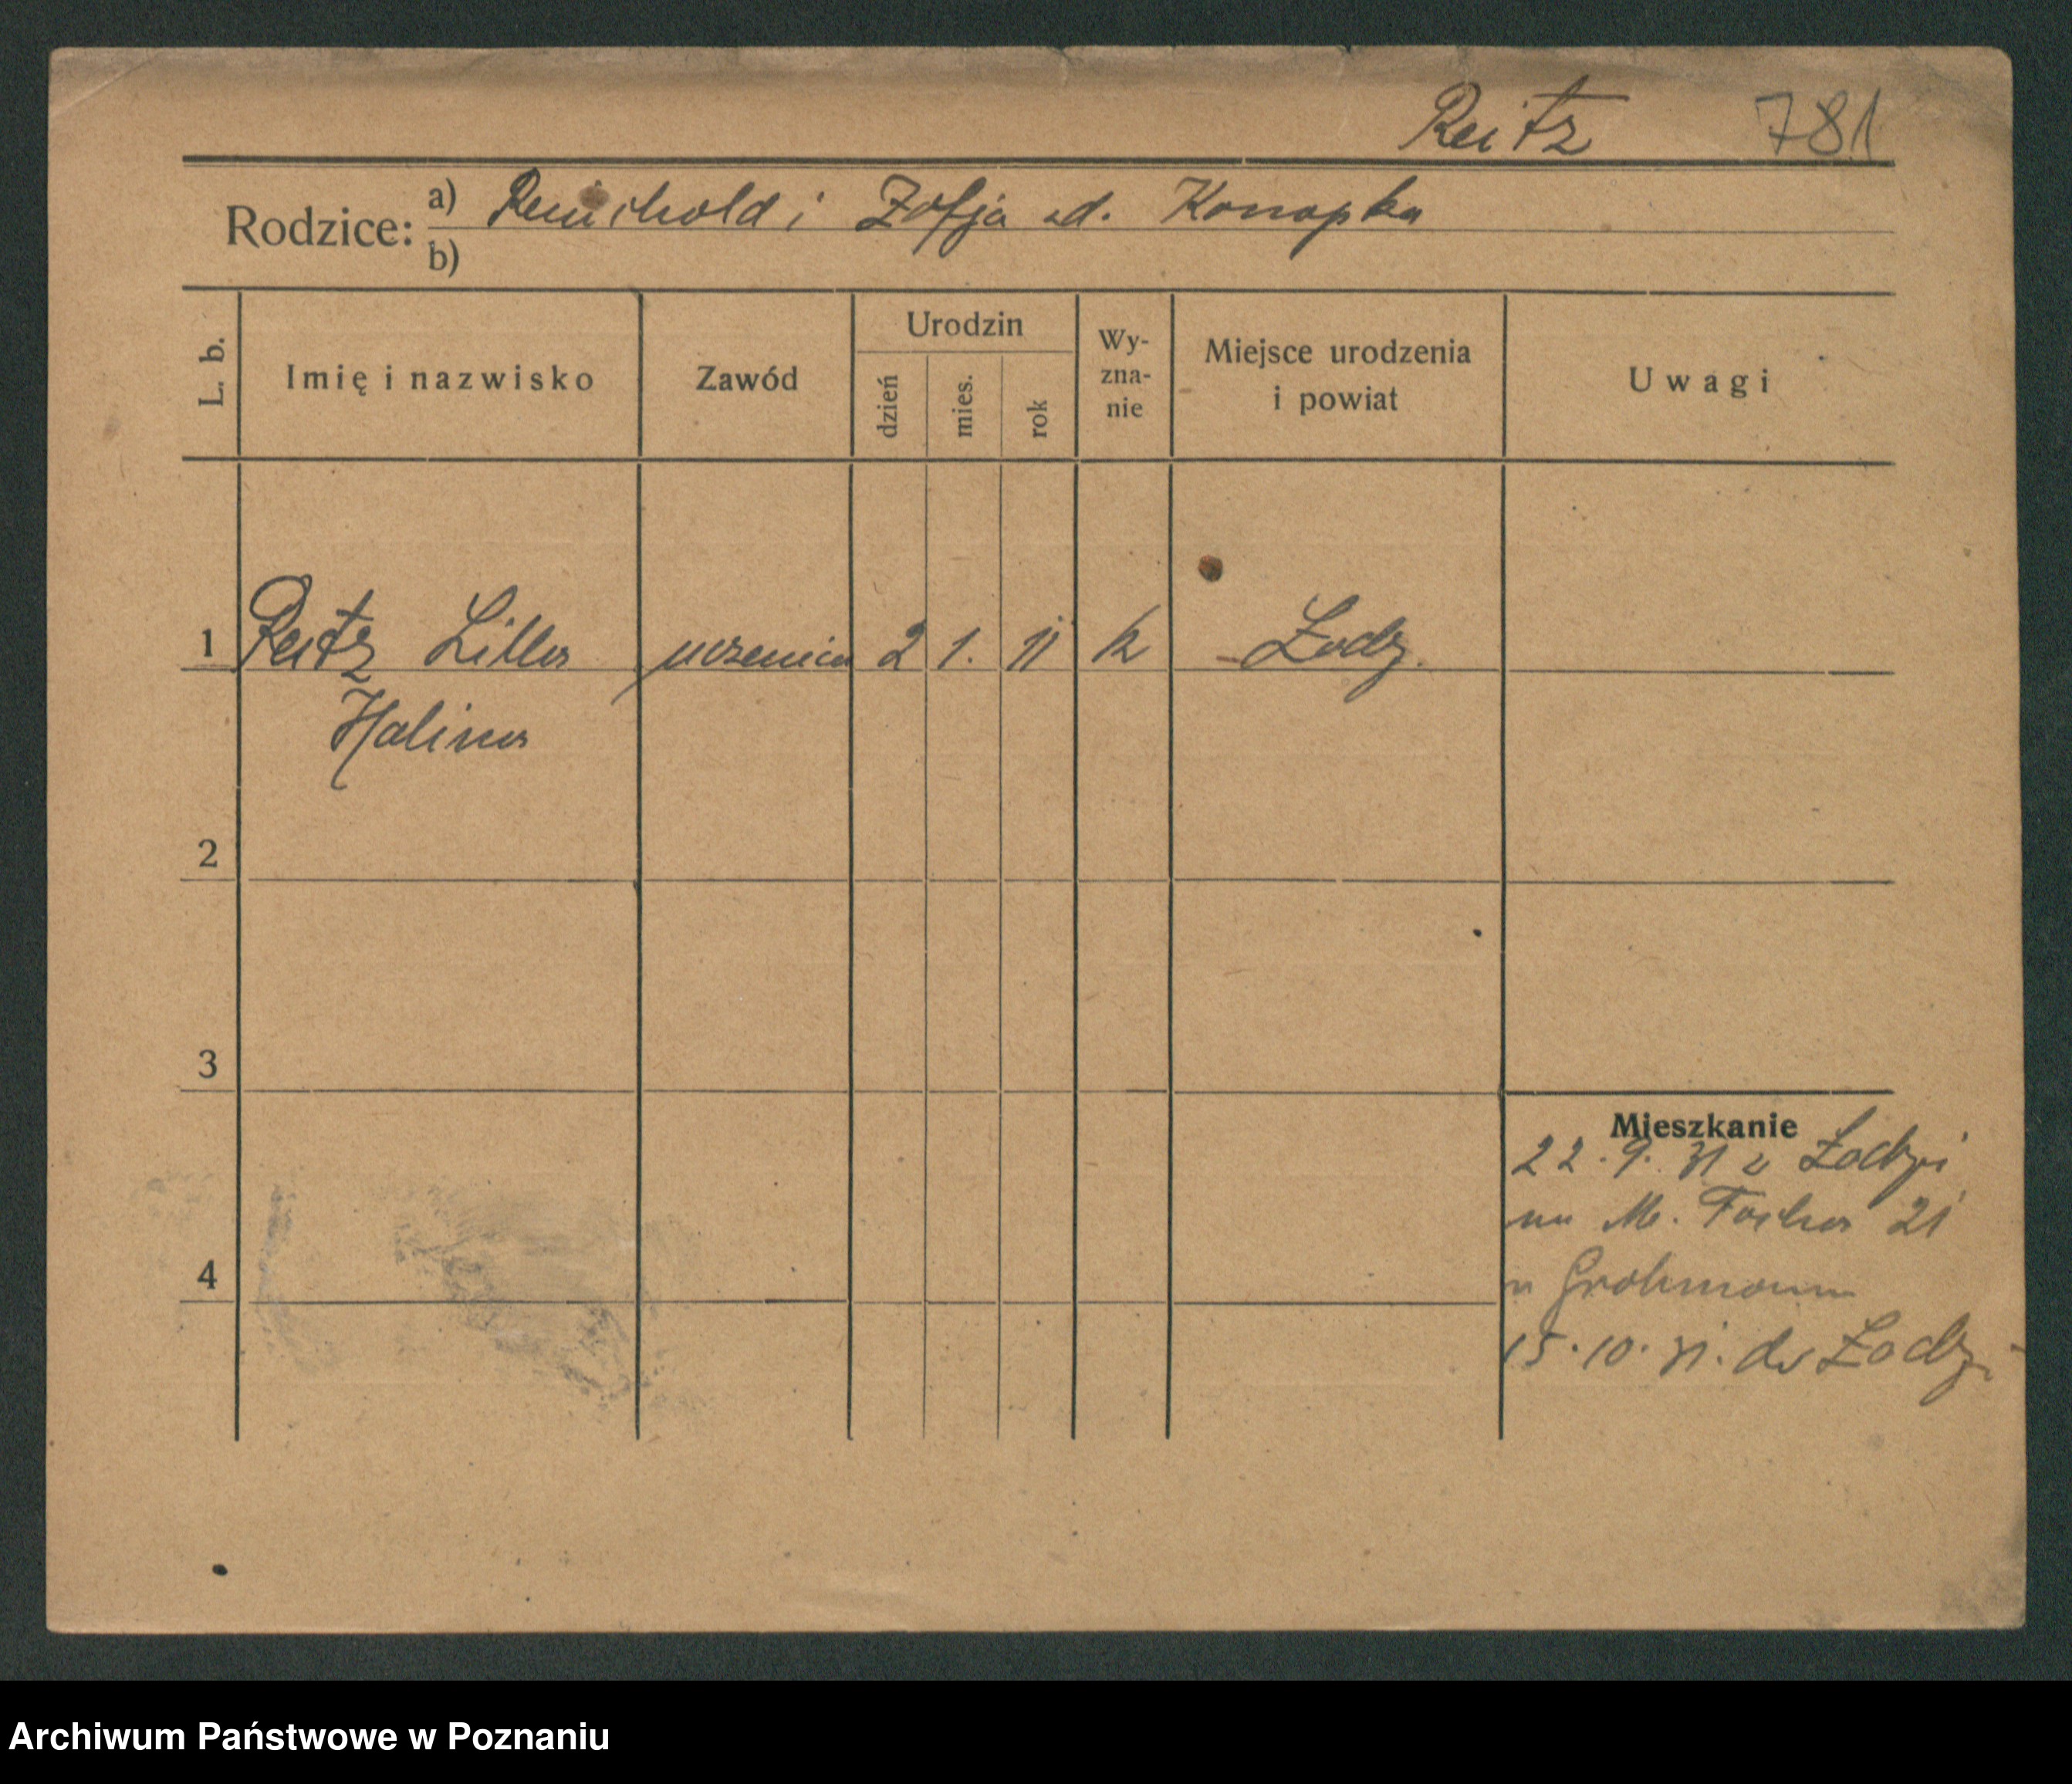 Reitz 781
Rodzice: a) Reinchold i Zofja zd. Konopka
b)
L. b. Imię i nazwisko Zawód Urodzin dzień mies. rok Wy-zna-nie Miejsce urodzenia i powiat Uwagi
1 Reitz Lilla uczenica 2 1. 11 k Łodz.
Halina
2
3
Mieszkanie
22.9.31 z Łodzi
na M. Focha 21
4 u Grohmann
15.10.31. do Łodzi
Archiwum Państwowe w Poznaniu